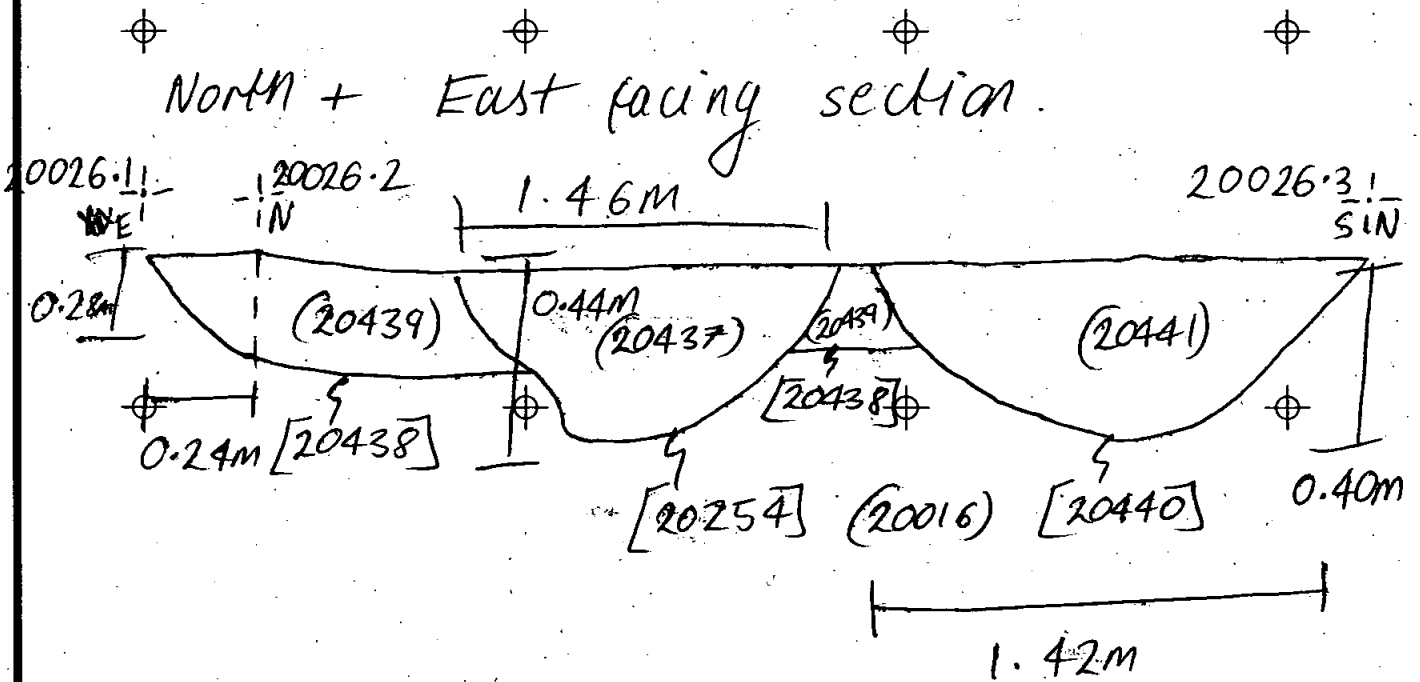 North + East facing section.
20026.1
20026.2
20026.3
E
N
S N
1.46M
0.28m
(20439)
0.44M
(20437)
(20439)
(20441)
[20438]
0.24M
[20438]
[20254]
(20016)
[20440]
0.40m
1.42M